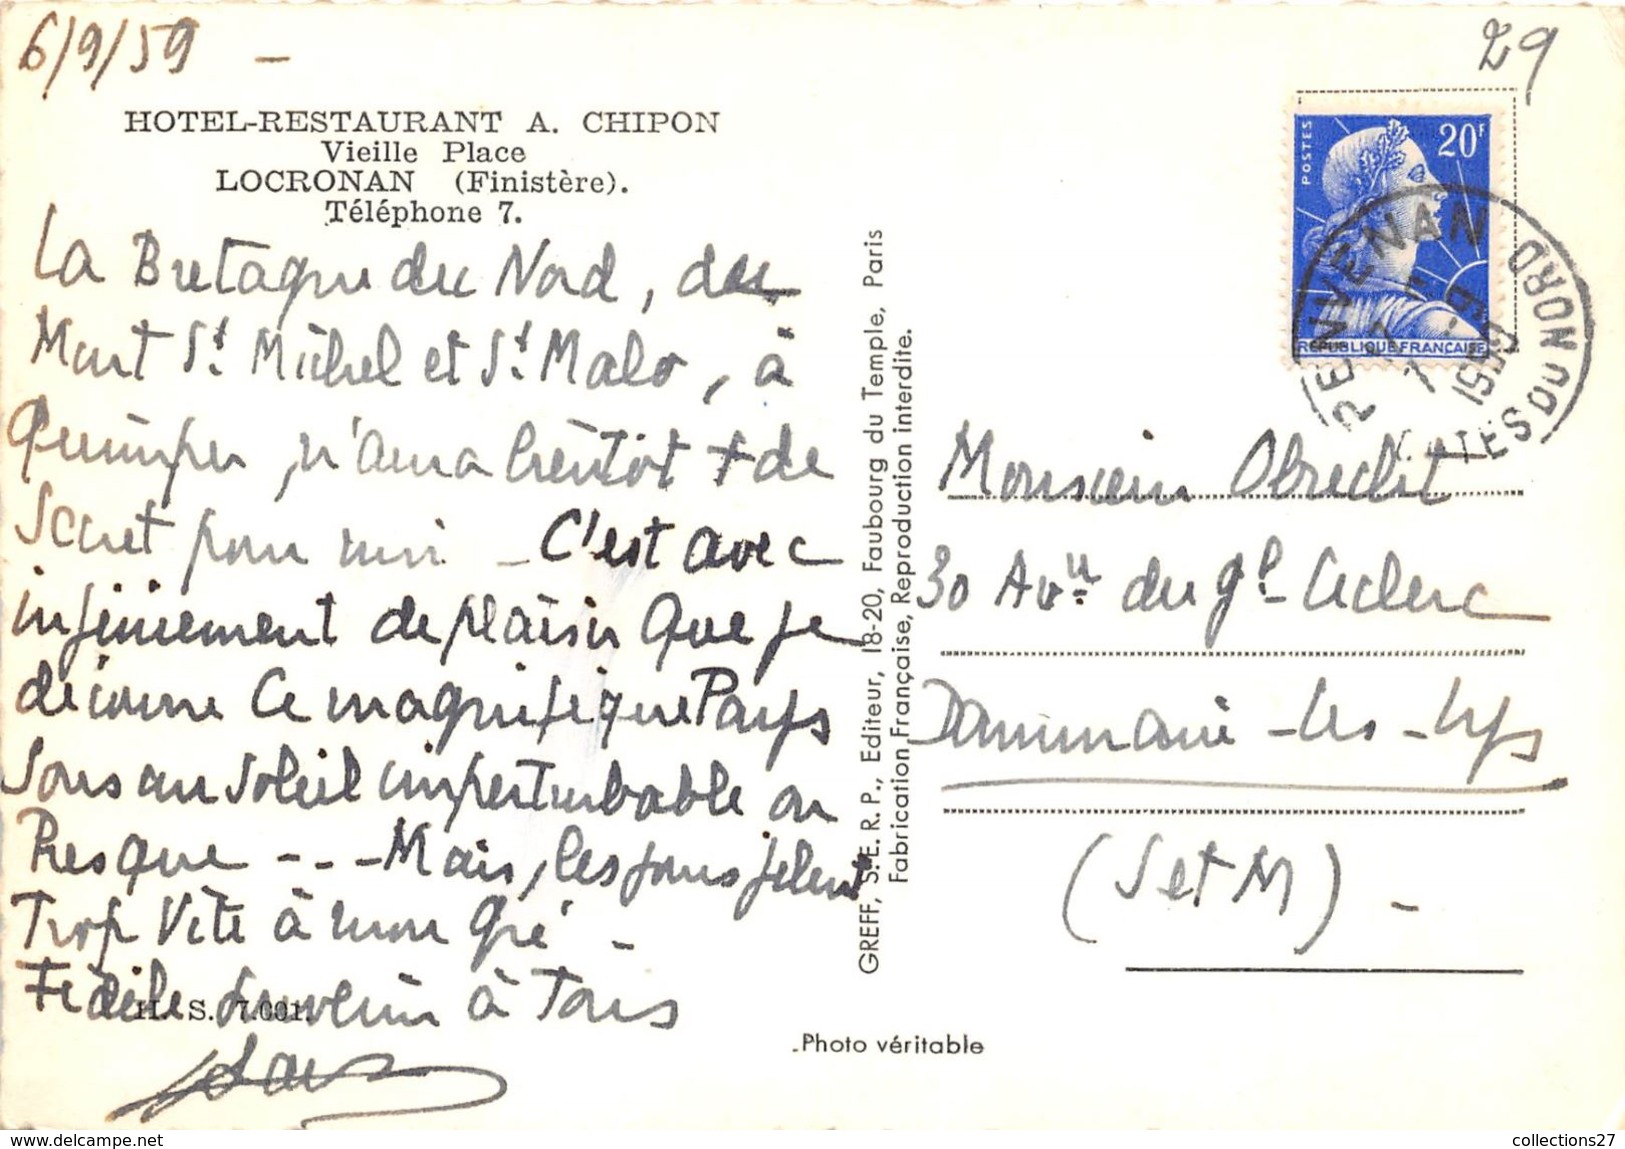 6/9/59 -
29
HOTEL-RESTAURANT A. CHIPON
Vieille Place
LOCRONAN (Finistère).
Téléphone 7.
La Bretagne du Nord, du
Mont St Michel et St Malo, à
Quimper, n'aura bientôt + de
Secret pour moi - C'est avec
infiniement de plaisir que je
découvre ce magnifique Pays
sous un soleil imperturbable ou
Presque - - - Mais, les jours filent
Trop Vite à mon Gré -
Fidèle souvenir à Tous
H. S. 7.001.
GREFF, S.E.R.P., Editeur, 18-20, Faubourg du Temple, Paris
Fabrication Française, Reproduction interdite.
Photo véritable
POSTES
20F
REPUBLIQUE FRANÇAISE
PENVENAN
7 - 9
1959
COTES DU NORD
Monsieur Obrecht
30 Avue du Gl Leclerc
Dammarie-les-Lys
(S et M) -
collections27
www.delcampe.net